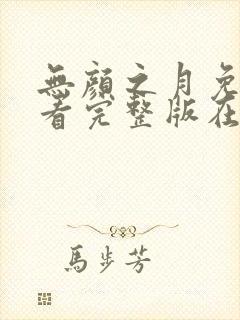 無顔之月免
看完整版在
馬步芳